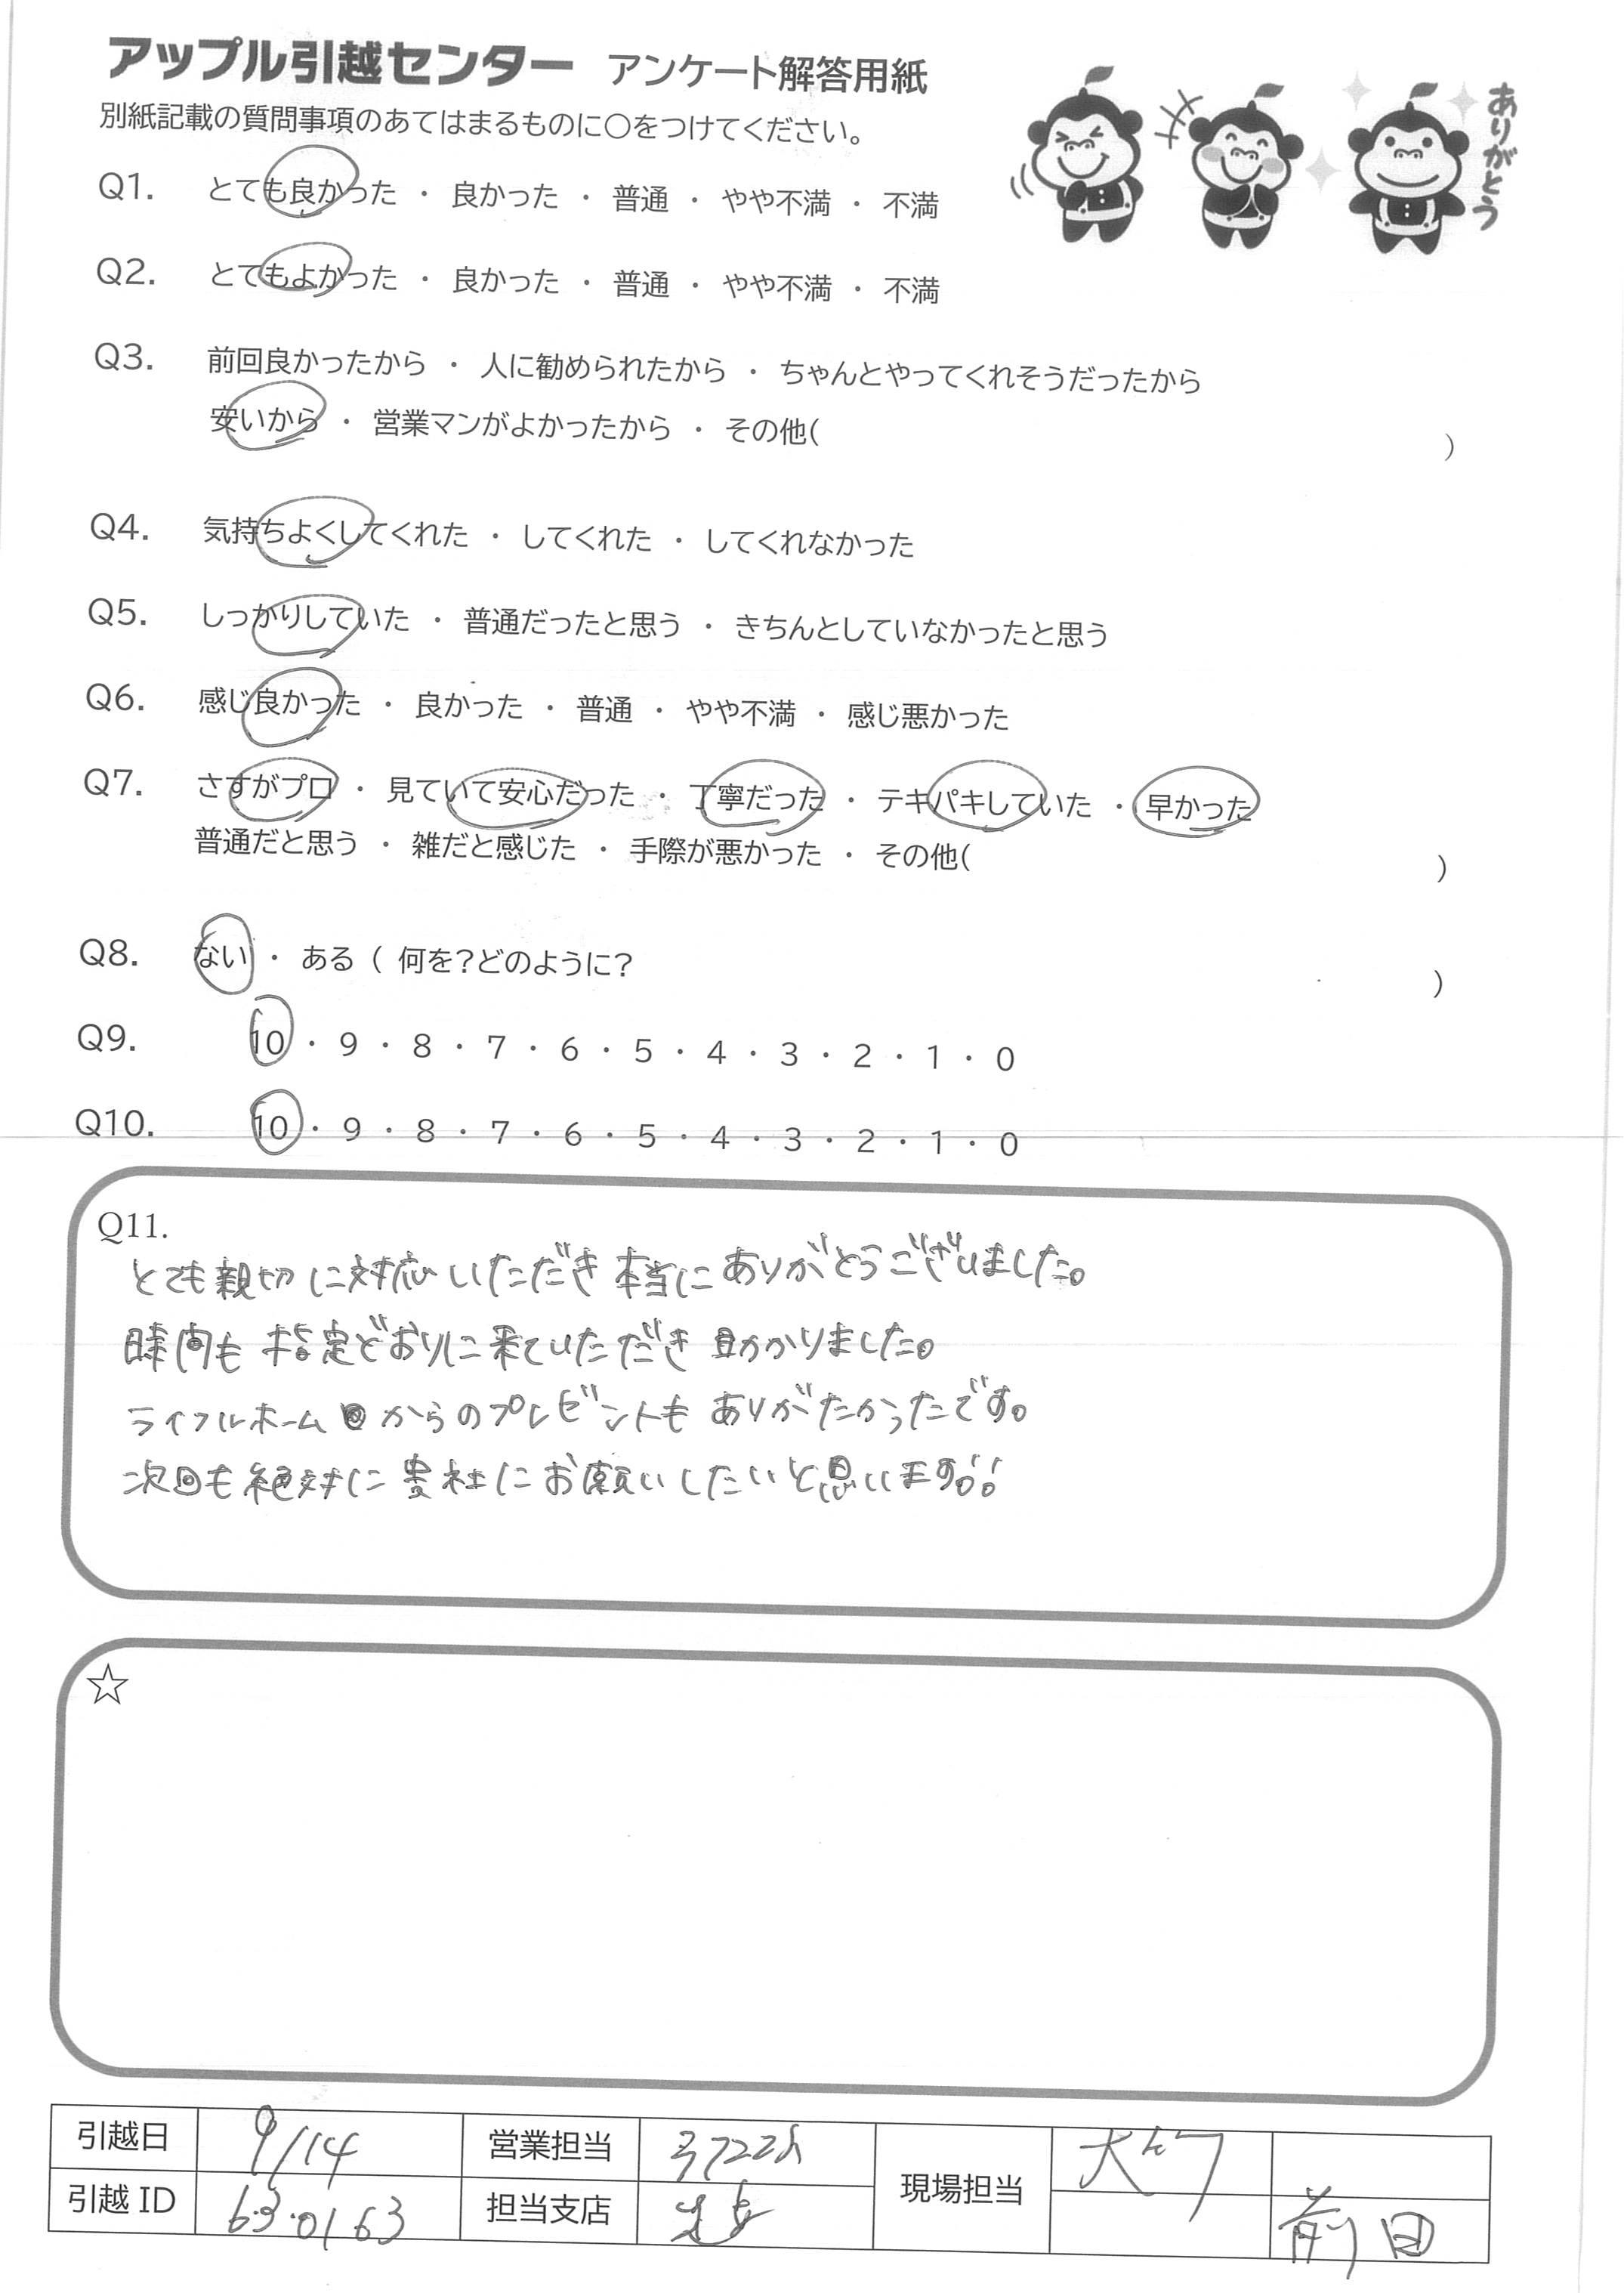 アップル引越センター アンケート解答用紙
別紙記載の質問事項のあてはまるものに〇をつけてください。
ありがとう
Q1. とても良かった ・ 良かった ・ 普通 ・ やや不満 ・ 不満
Q2. とてもよかった ・ 良かった ・ 普通 ・ やや不満 ・ 不満
Q3. 前回良かったから ・ 人に勧められたから ・ ちゃんとやってくれそうだったから
安いから ・ 営業マンがよかったから ・ その他( )
Q4. 気持ちよくしてくれた ・ してくれた ・ してくれなかった
Q5. しっかりしていた ・ 普通だったと思う ・ きちんとしていなかったと思う
Q6. 感じ良かった ・ 良かった ・ 普通 ・ やや不満 ・ 感じ悪かった
Q7. さすがプロ ・ 見ていて安心だった ・ 丁寧だった ・ テキパキしていた ・ 早かった
普通だと思う ・ 雑だと感じた ・ 手際が悪かった ・ その他( )
Q8. ない ・ ある ( 何を?どのように? )
Q9. 10 ・ 9 ・ 8 ・ 7 ・ 6 ・ 5 ・ 4 ・ 3 ・ 2 ・ 1 ・ 0
Q10. 10 ・ 9 ・ 8 ・ 7 ・ 6 ・ 5 ・ 4 ・ 3 ・ 2 ・ 1 ・ 0
Q11.
とても親切に対応いただき本当にありがとうございました。
時間も指定どおりに来ていただき助かりました。
ライフルホームからのプレゼントもありがたかったです。
次回も絶対に貴社にお願いしたいと思います!!
☆
引越日 9/14 営業担当 現場担当
引越ID 63.0163 担当支店 前田